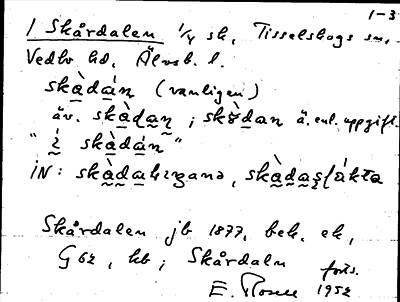 1-3
1 Skårdalen 1/4 sk, Tisselskogs sn,
Vedbo hd, Älvsb. l.
skàdán (vanligen)
äv. skàdan ; skòdan ä. enl. uppgift.
"í skàdán"
iN: skàdahizganə, skàdasfákta
Skårdalen jb 1877, bek. ek,
G 62, hb ; Skårdaln forts.
E. 1952